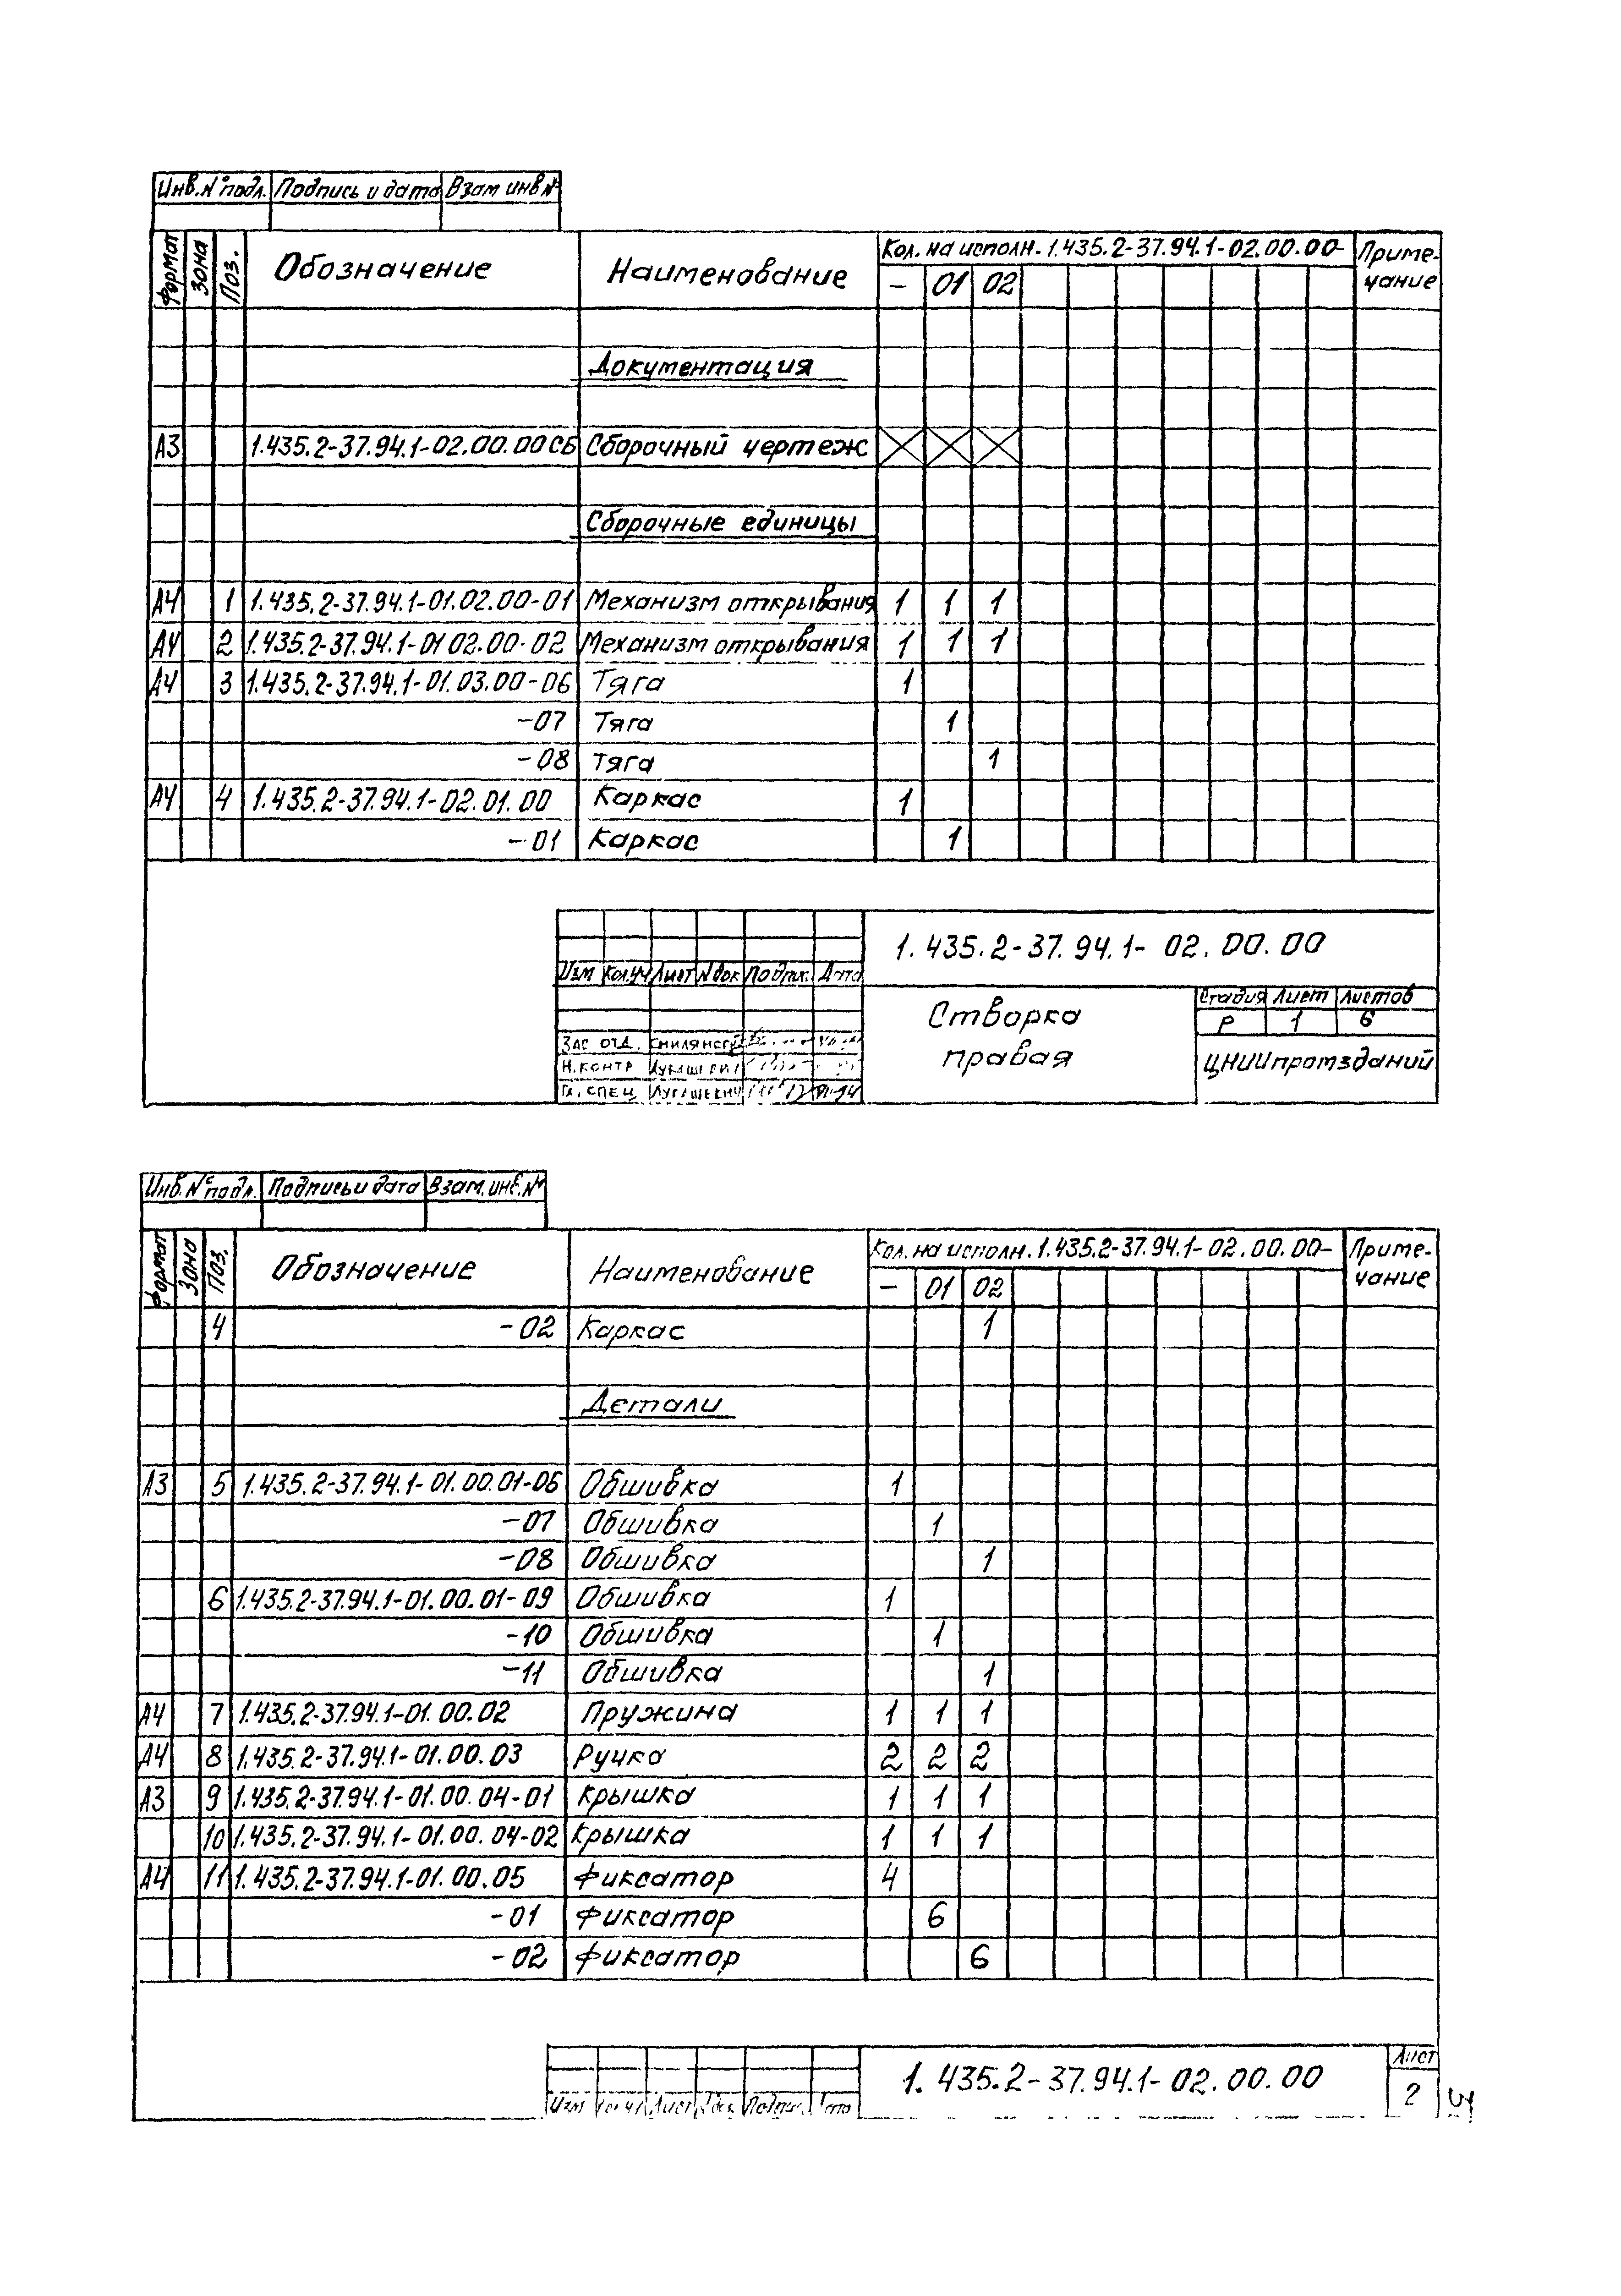 Инв.№подл. Подпись и дата Взам инв№
Формат Зона Поз. Обозначение Наименование Кол. на исполн. 1.435.2-37.94.1-02.00.00- Приме-
чание
– 01 02
Документация
А3 1.435.2-37.94.1-02.00.00СБ Сборочный чертеж
Сборочные единицы
А4 1 1.435.2-37.94.1-01.02.00-01 Механизм открывания 1 1 1
А4 2 1.435.2-37.94.1-01 02.00-02 Механизм открывания 1 1 1
А4 3 1.435.2-37.94.1-01.03.00-06 Тяга 1
-07 Тяга 1
-08 Тяга 1
А4 4 1.435.2-37.94.1-02.01.00 Каркас 1
-01 Каркас 1
1.435.2-37.94.1-02.00.00
Изм Кол.уч Лист Nдок Подпис. Дата
Створка
правая
Стадия Лист Листов
Р 1 6
Зав отд.
Н.контр Лукашевич
Гл.спец Лукашевич
ЦНИИпромзданий
Инв.№подл. Подпись и дата Взам.инв.№
Формат Зона Поз. Обозначение Наименование Кол. на исполн. 1.435.2-37.94.1-02.00.00- Приме-
чание
– 01 02
4 -02 Каркас 1
Детали
А3 5 1.435.2-37.94.1-01.00.01-06 Обшивка 1
-07 Обшивка 1
-08 Обшивка 1
6 1.435.2-37.94.1-01.00.01-09 Обшивка 1
-10 Обшивка 1
-11 Обшивка 1
А4 7 1.435.2-37.94.1-01.00.02 Пружина 1 1 1
А4 8 1.435.2-37.94.1-01.00.03 Ручка 2 2 2
А3 9 1.435.2-37.94.1-01.00.04-01 Крышка 1 1 1
10 1.435.2-37.94.1-01.00.04-02 Крышка 1 1 1
А4 11 1.435.2-37.94.1-01.00.05 Фиксатор 4
-01 Фиксатор 6
-02 Фиксатор 6
1.435.2-37.94.1-02.00.00
Лист
2
Изм Лист Подпис.